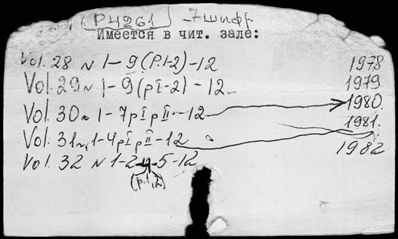 (Р4261) - 7шифр
Имеется в чит. зале:
Vol. 28 N 1-9 (P.1-2) -12 1978
Vol. 29 N 1-9 (pI-2) -12 1979
Vol. 30 N 1-7 pI pII -12 1980
Vol. 31 N 1-4 pI pII -12 1981.
Vol. 32 N 1-2-4-5-12 1982
(p.1,2)